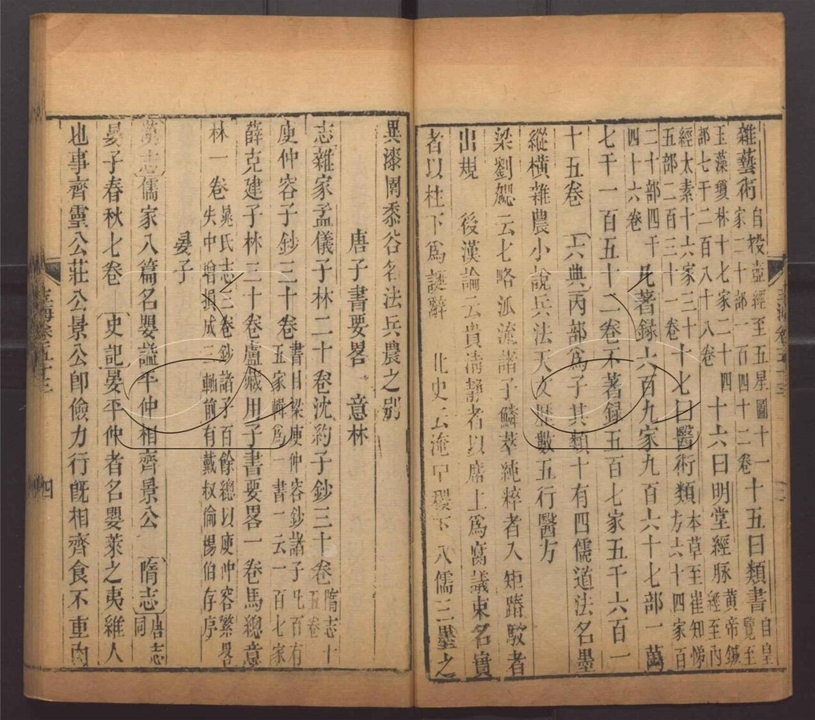 雜藝術自投壺經至五星圖十一家二十部一百四十二卷十五曰類書自皇覽至
玉藻瓊林十七家二十四部七千二百八十八卷十六曰明堂經脉黃帝鍼經至內
經太素十六家三十五部二百三十一卷十七曰醫術類本草至崔知悌方六十四家百
二十部四千四十六卷凡著錄六百九家九百六十七部一萬
七千一百五十二卷不著錄五百七家五千六百一
十五卷 六典丙部爲子其類十有四儒道法名墨
縱橫雜農小說兵法天文曆數五行醫方
梁劉勰云七略派流諸子鱗萃純粹者入矩踳駮者
出規 後漢論云貴淸靜者以席上爲腐議束名實
者以柱下爲誕辭 北史云淹中稷下八儒三墨之
異漆園黍谷名法兵農之別
唐子書要畧 意林
志雜家孟儀子林二十卷沈約子鈔三十卷隋志十五卷
庾仲容子鈔三十卷書目梁庾仲容鈔諸子凡百有五家輯爲一書一云一百七家
薛克建子林三十卷盧藏用子書要畧一卷馬總意
林一卷晁氏志三卷鈔諸子百餘總以庾仲容繁畧失中增損成三軸前有戴叔倫楊伯存序
晏子
漢志儒家八篇名嬰謚平仲相齊景公 隋志唐志同
晏子春秋七卷 史記晏平仲者名嬰萊之夷維人
也事齊靈公莊公景公卽儉力行旣相齊食不重肉
四